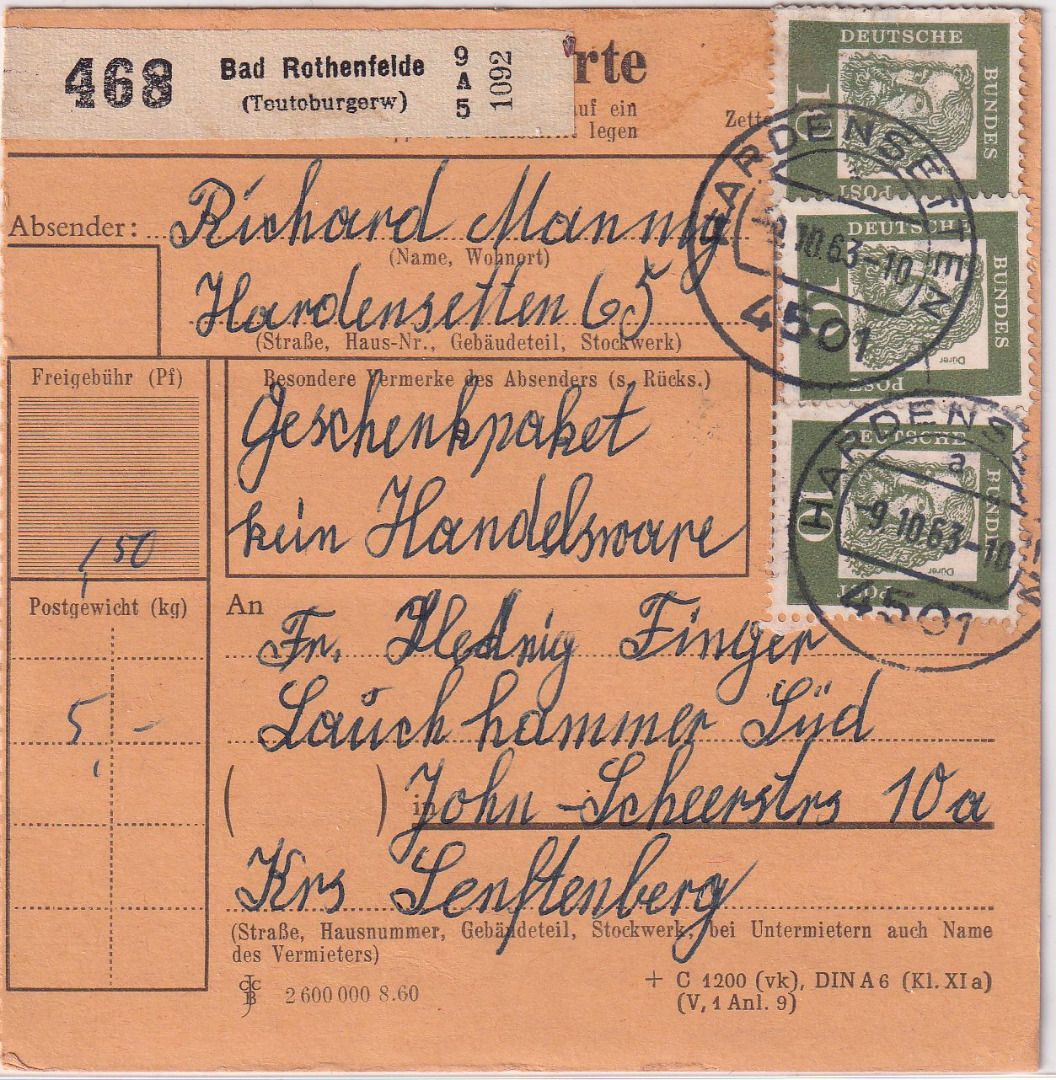 468 Bad Rothenfelde
(Teutoburgerw)
9
A
5
1092
rte
auf ein
legen
Zette
Absender: Richard Mannig
(Name, Wohnort)
Hardensetten 65
(Straße, Haus-Nr., Gebäudeteil, Stockwerk)
Freigebühr (Pf)
1,50
Besondere Vermerke des Absenders (s. Rücks.)
Geschenkpaket
kein Handelsware
Postgewicht (kg)
5,-
An
Fr. Hedwig Finger
Lauchhammer Süd
( ) in John-Scheerstrs 10a
Krs Senftenberg
(Straße, Hausnummer, Gebäudeteil, Stockwerk; bei Untermietern auch Name
des Vermieters)
2 600 000 8.60
+ C 1200 (vk), DIN A 6 (Kl. XI a)
(V, 1 Anl. 9)
DEUTSCHE
BUNDES
POST
10
DEUTSCHE
BUNDES
POST
10
Dürer
DEUTSCHE
BUNDES
POST
10
Dürer
HARDENSETTEN
10.63-10
4501
HARDENS
a
-9.10.63-10
4501